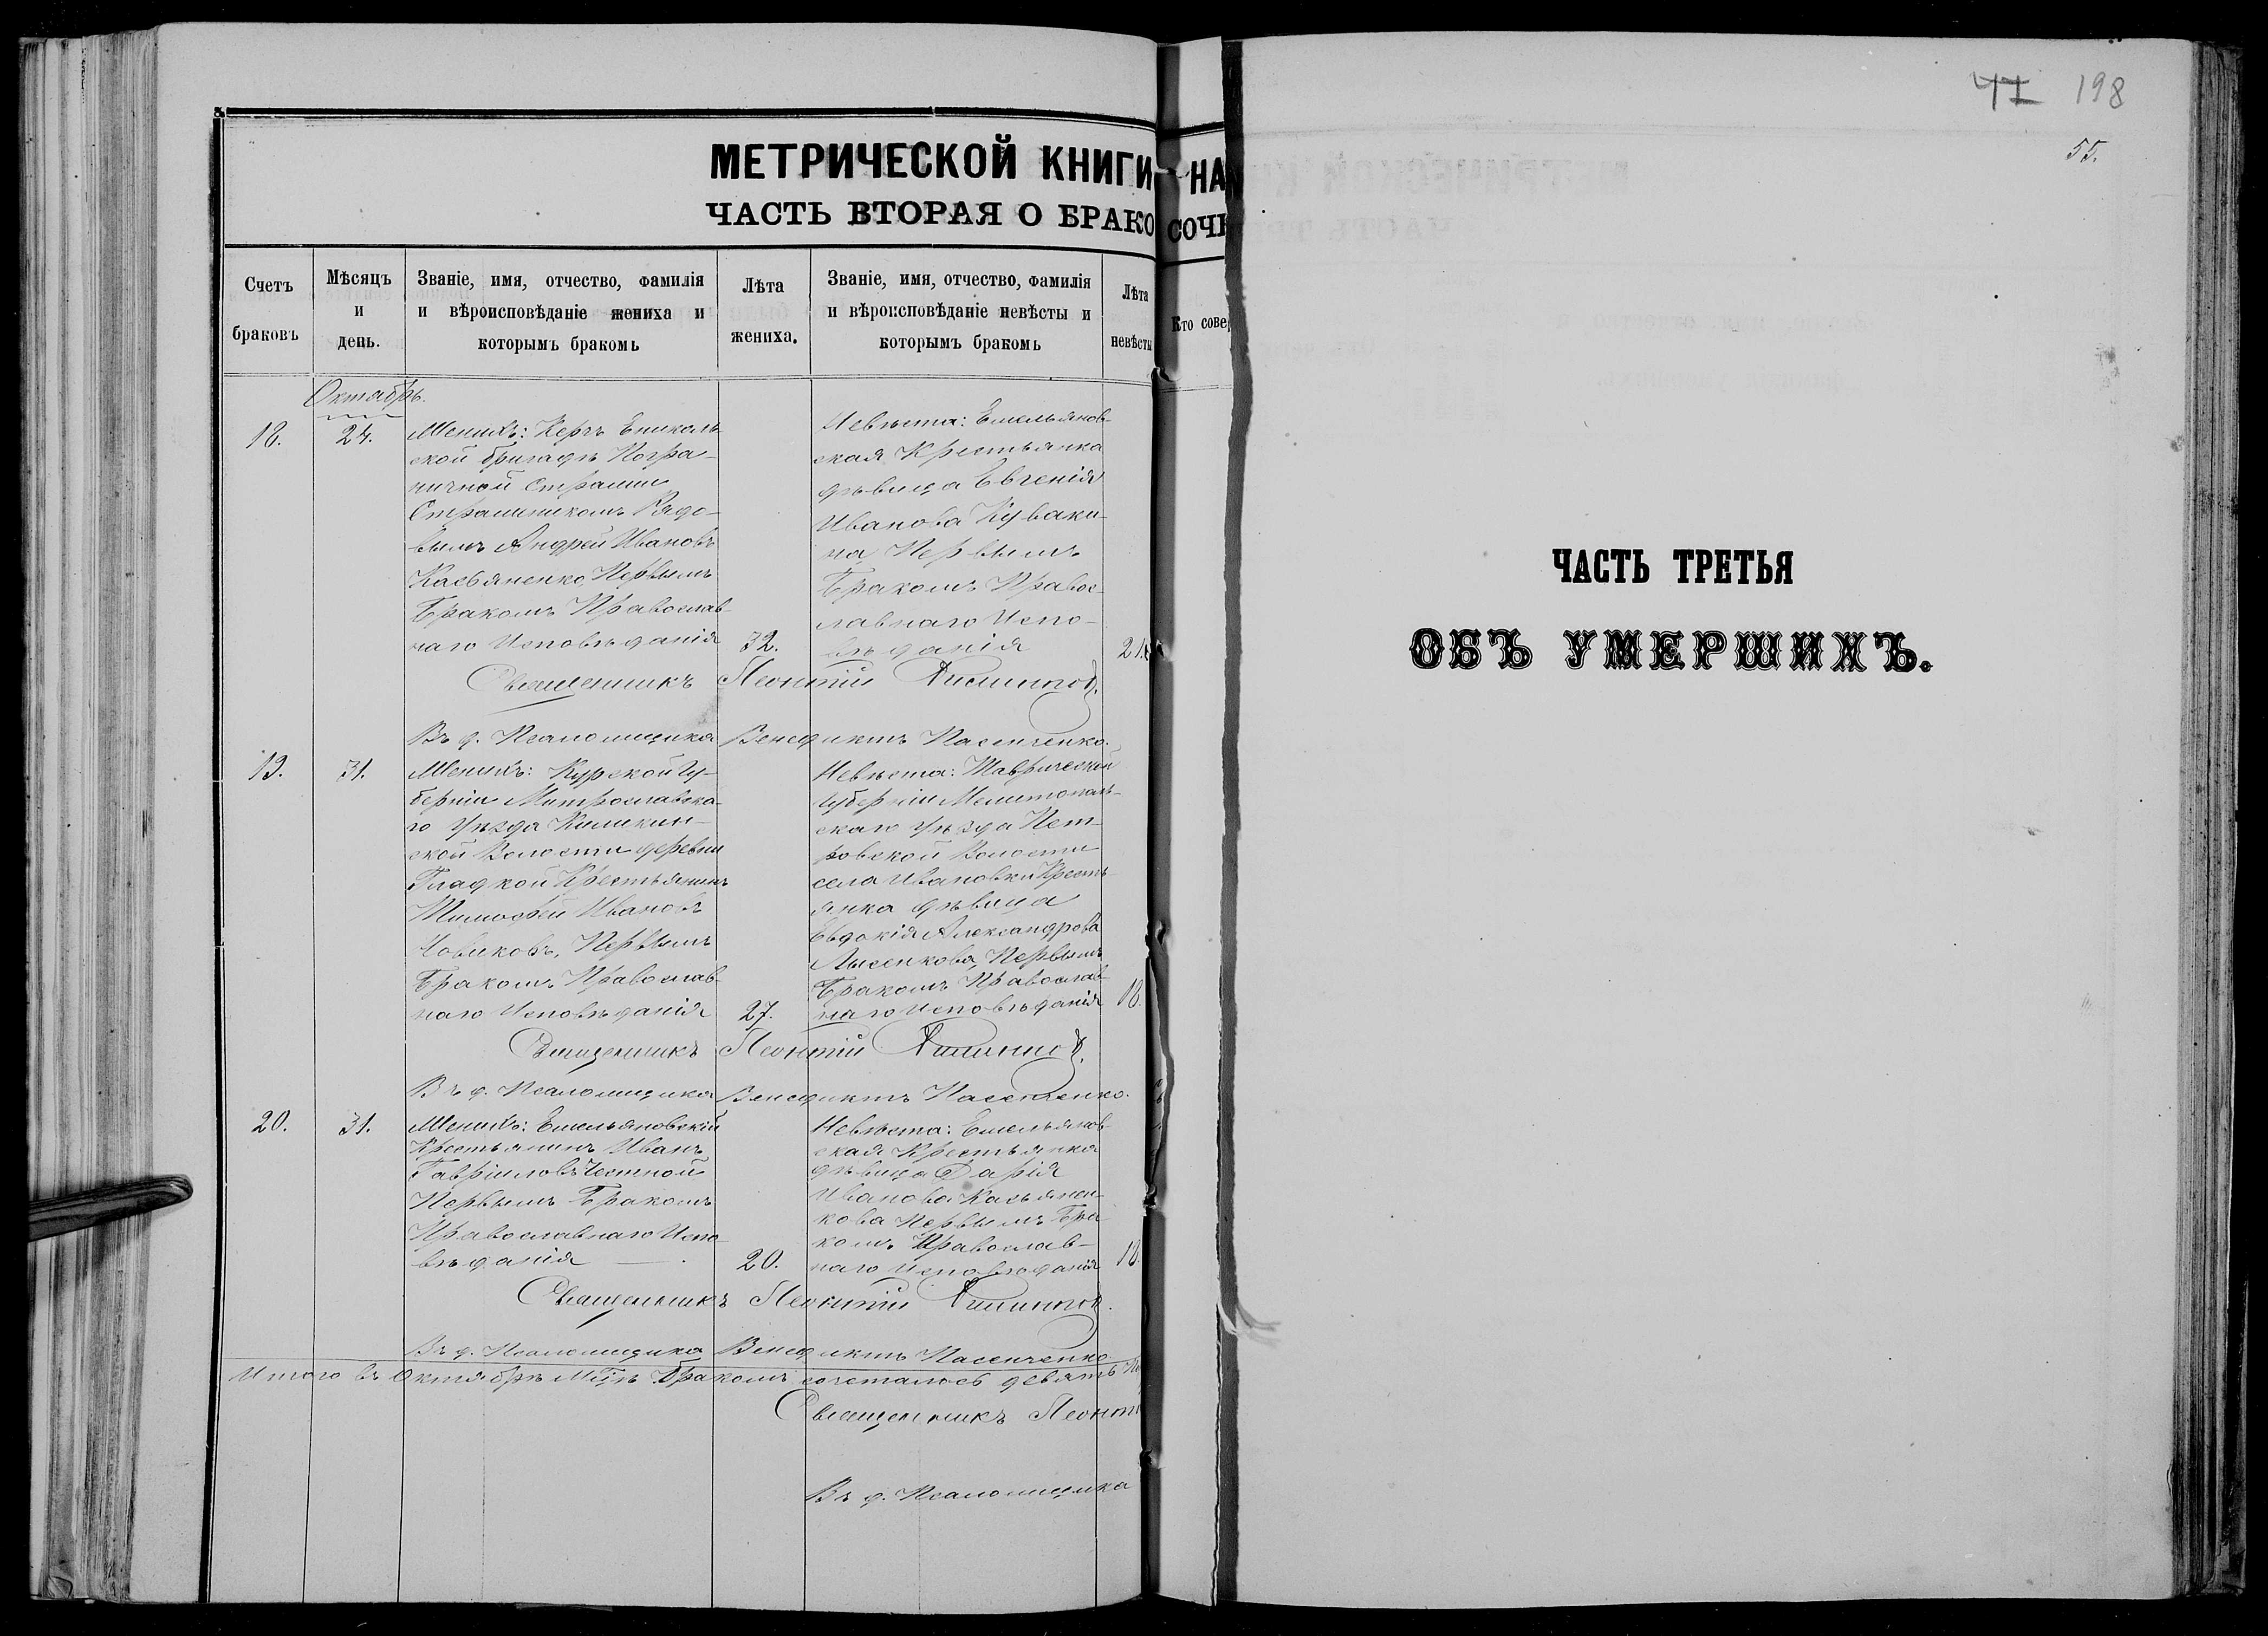 МЕТРИЧЕСКОЙ КНИГИ НА
ЧАСТЬ ВТОРАЯ О БРАКОСОЧ
Счетъ браковъ
Мѣсяцъ и день.
Званіе, имя, отчество, фамилія
и вѣроисповѣданіе жениха и
которымъ бракомъ
Лѣта
жениха.
Званіе, имя, отчество, фамилія
и вѣроисповѣданіе невѣсты и
которымъ бракомъ
Лѣта
невѣсты
Кто сове
Октябрь.
18.
24.
Женихъ: Керчъ Ениколь-
ской бригадѣ Погра-
ничной Стражи
Стражникомъ Рядо-
вымъ Андрей Ивановъ
Касьяненко, Первымъ
Бракомъ Православ-
наго Исповѣданія
32.
Невѣста: Емельянов-
ская Крестьянка
дѣвица Евгенія
Иванова Куваки-
на Первымъ
Бракомъ Правос-
лавнаго Испо-
вѣданія
21.
Священникъ Леонтій
Въ д. Псаломщика Венедиктъ Пасенченко.
19.
31.
Женихъ: Курской Гу-
берніи
го Уѣзда
ской Волости деревни
Гладкой Крестьянинъ
Тимофей Ивановъ
Новиковъ, Первымъ
Бракомъ Православ-
наго Исповѣданія
27.
Невѣста: Таврической
Губерніи Мелитополь-
скаго Уѣзда Пет-
ровской Волости
села Ивановки Кресть-
янка дѣвица
Евдокія Александрова
Лысенкова, Первымъ
Бракомъ Православ-
наго Исповѣданія
18.
Священникъ Леонтій
Въ д. Псаломщика Венедиктъ Пасенченко.
20.
31.
Женихъ: Емельяновскій
Крестьянинъ Иванъ
Гавріиловъ Честной
Первымъ Бракомъ
Православнаго Испо-
вѣданія
20.
Невѣста: Емельянов-
ская Крестьянка
дѣвица Дарія
Иванова Касьянен-
кова Первымъ Бра-
комъ Православ-
наго Исповѣданія
18.
Священникъ Леонтій
Въ д. Псаломщика Венедиктъ Пасенченко
Итого въ Октябрѣ Мцѣ Бракомъ сочеталось девять
Священникъ Леонт
Въ д. Псаломщика
41 198
55.
ЧАСТЬ ТРЕТЬЯ
ОБЪ УМЕРШИХЪ.